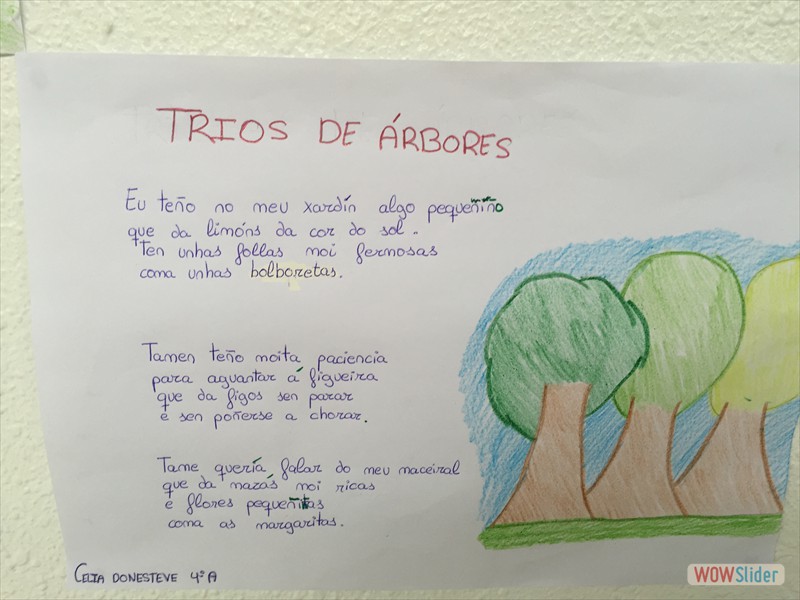 TRIOS DE ÁRBORES
Eu teño no meu xardín algo pequeniño
que da limóns da cor do sol.
Ten unhas follas moi fermosas
coma unhas bolboretas.
Tamen teño moita paciencia
para aguantar á figueira
que da figos sen parar
e sen poñerse a chorar.
Tame quería falar do meu maceiral
que da mazás moi ricas
e flores pequeñitas
coma as margaritas.
CELIA DONESTEVE 4ºA
WOWSlider